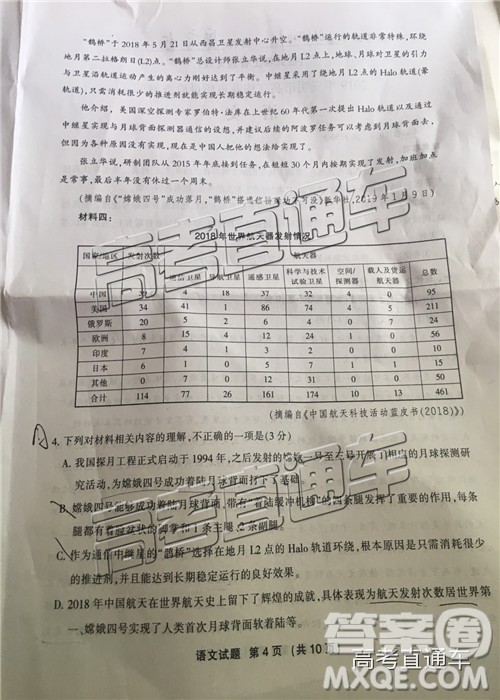 “鹊桥”于 2018 年 5 月 21 日从西昌卫星发射中心升空。“鹊桥”运行的轨道非常特殊,环绕
地月第二拉格朗日(L2)点。“鹊桥”总设计师张立华说,在地月 L2 点上,地球、月球对卫星的引力
与卫星沿轨道运动产生的离心力刚好达到了平衡。中继星采用了绕地月 L2 点的 Halo 轨道(晕
轨道),只需消耗很少的推进剂就能实现长期稳定运行。
他介绍,美国深空探测专家罗伯特·法库在上世纪 60 年代第一次提出 Halo 轨道以及通过
中继星实现与月球背面探测器通信的设想,并建议后续的阿波罗任务可以考虑到月球背面去,
但因为各种原因没有实现,现在是中国人把他的想法给实现了。
张立华说,研制团队从 2015 年年底接到任务,在短短 30 个月内按期实现了发射,加班加点
是常事,最后半年没有休过一个周末。
(摘编自《“嫦娥四号”成功落月,“鹊桥”搭通信 2019 年 1 月 9 日)
材料四:
2018 年世界航天器发射情况
国家/地区 发射次数 航天器
通信卫星 导航卫星 遥感卫星 科学与技术试验卫星 空间/探测器 载人及货运航天器 总数
中国 4 18 37 32 4 0 95
美国 34 41 1 86 74 4 5 211
俄罗斯 20 5 2 6 4 0 7 24
欧洲 8 15 4 12 24 1 0 56
印度 7 4 1 3 2 0 10
日本 6 1 0 5 1 15
其他 0 7 0 12 31 0 0 50
合计 114 77 26 161 174 10 13 461
(摘编自《中国航天科技活动蓝皮书(2018)》)
4. 下列对材料相关内容的理解,不正确的一项是(3 分)
A. 我国探月工程正式启动于 1994 年,之后发射的嫦娥一号至六号开展了相应的月球探测研
究活动,为嫦娥四号成功着陆月球背面打下了基础。
B. 嫦娥四号能够成功着陆月球背面,带有“着陆缓冲机构”的四条腿发挥了重要的作用,每条
腿都有着碗盆状的脚掌和 1 条主腿、2 条副腿。
C. 作为通信中继星的“鹊桥”选择在地月 L2 点的 Halo 轨道环绕,根本原因是只需消耗很少
的推进剂,并且能达到长期稳定运行的良好效果。
D. 2018 年中国航天在世界航天史上留下了辉煌的成就,具体表现为航天发射次数居世界第
一、嫦娥四号实现了人类首次月球背面软着陆等。
语文试题 第 4 页 (共 10 页)
高考直通车
高考直通车
答案圈
高考直通车